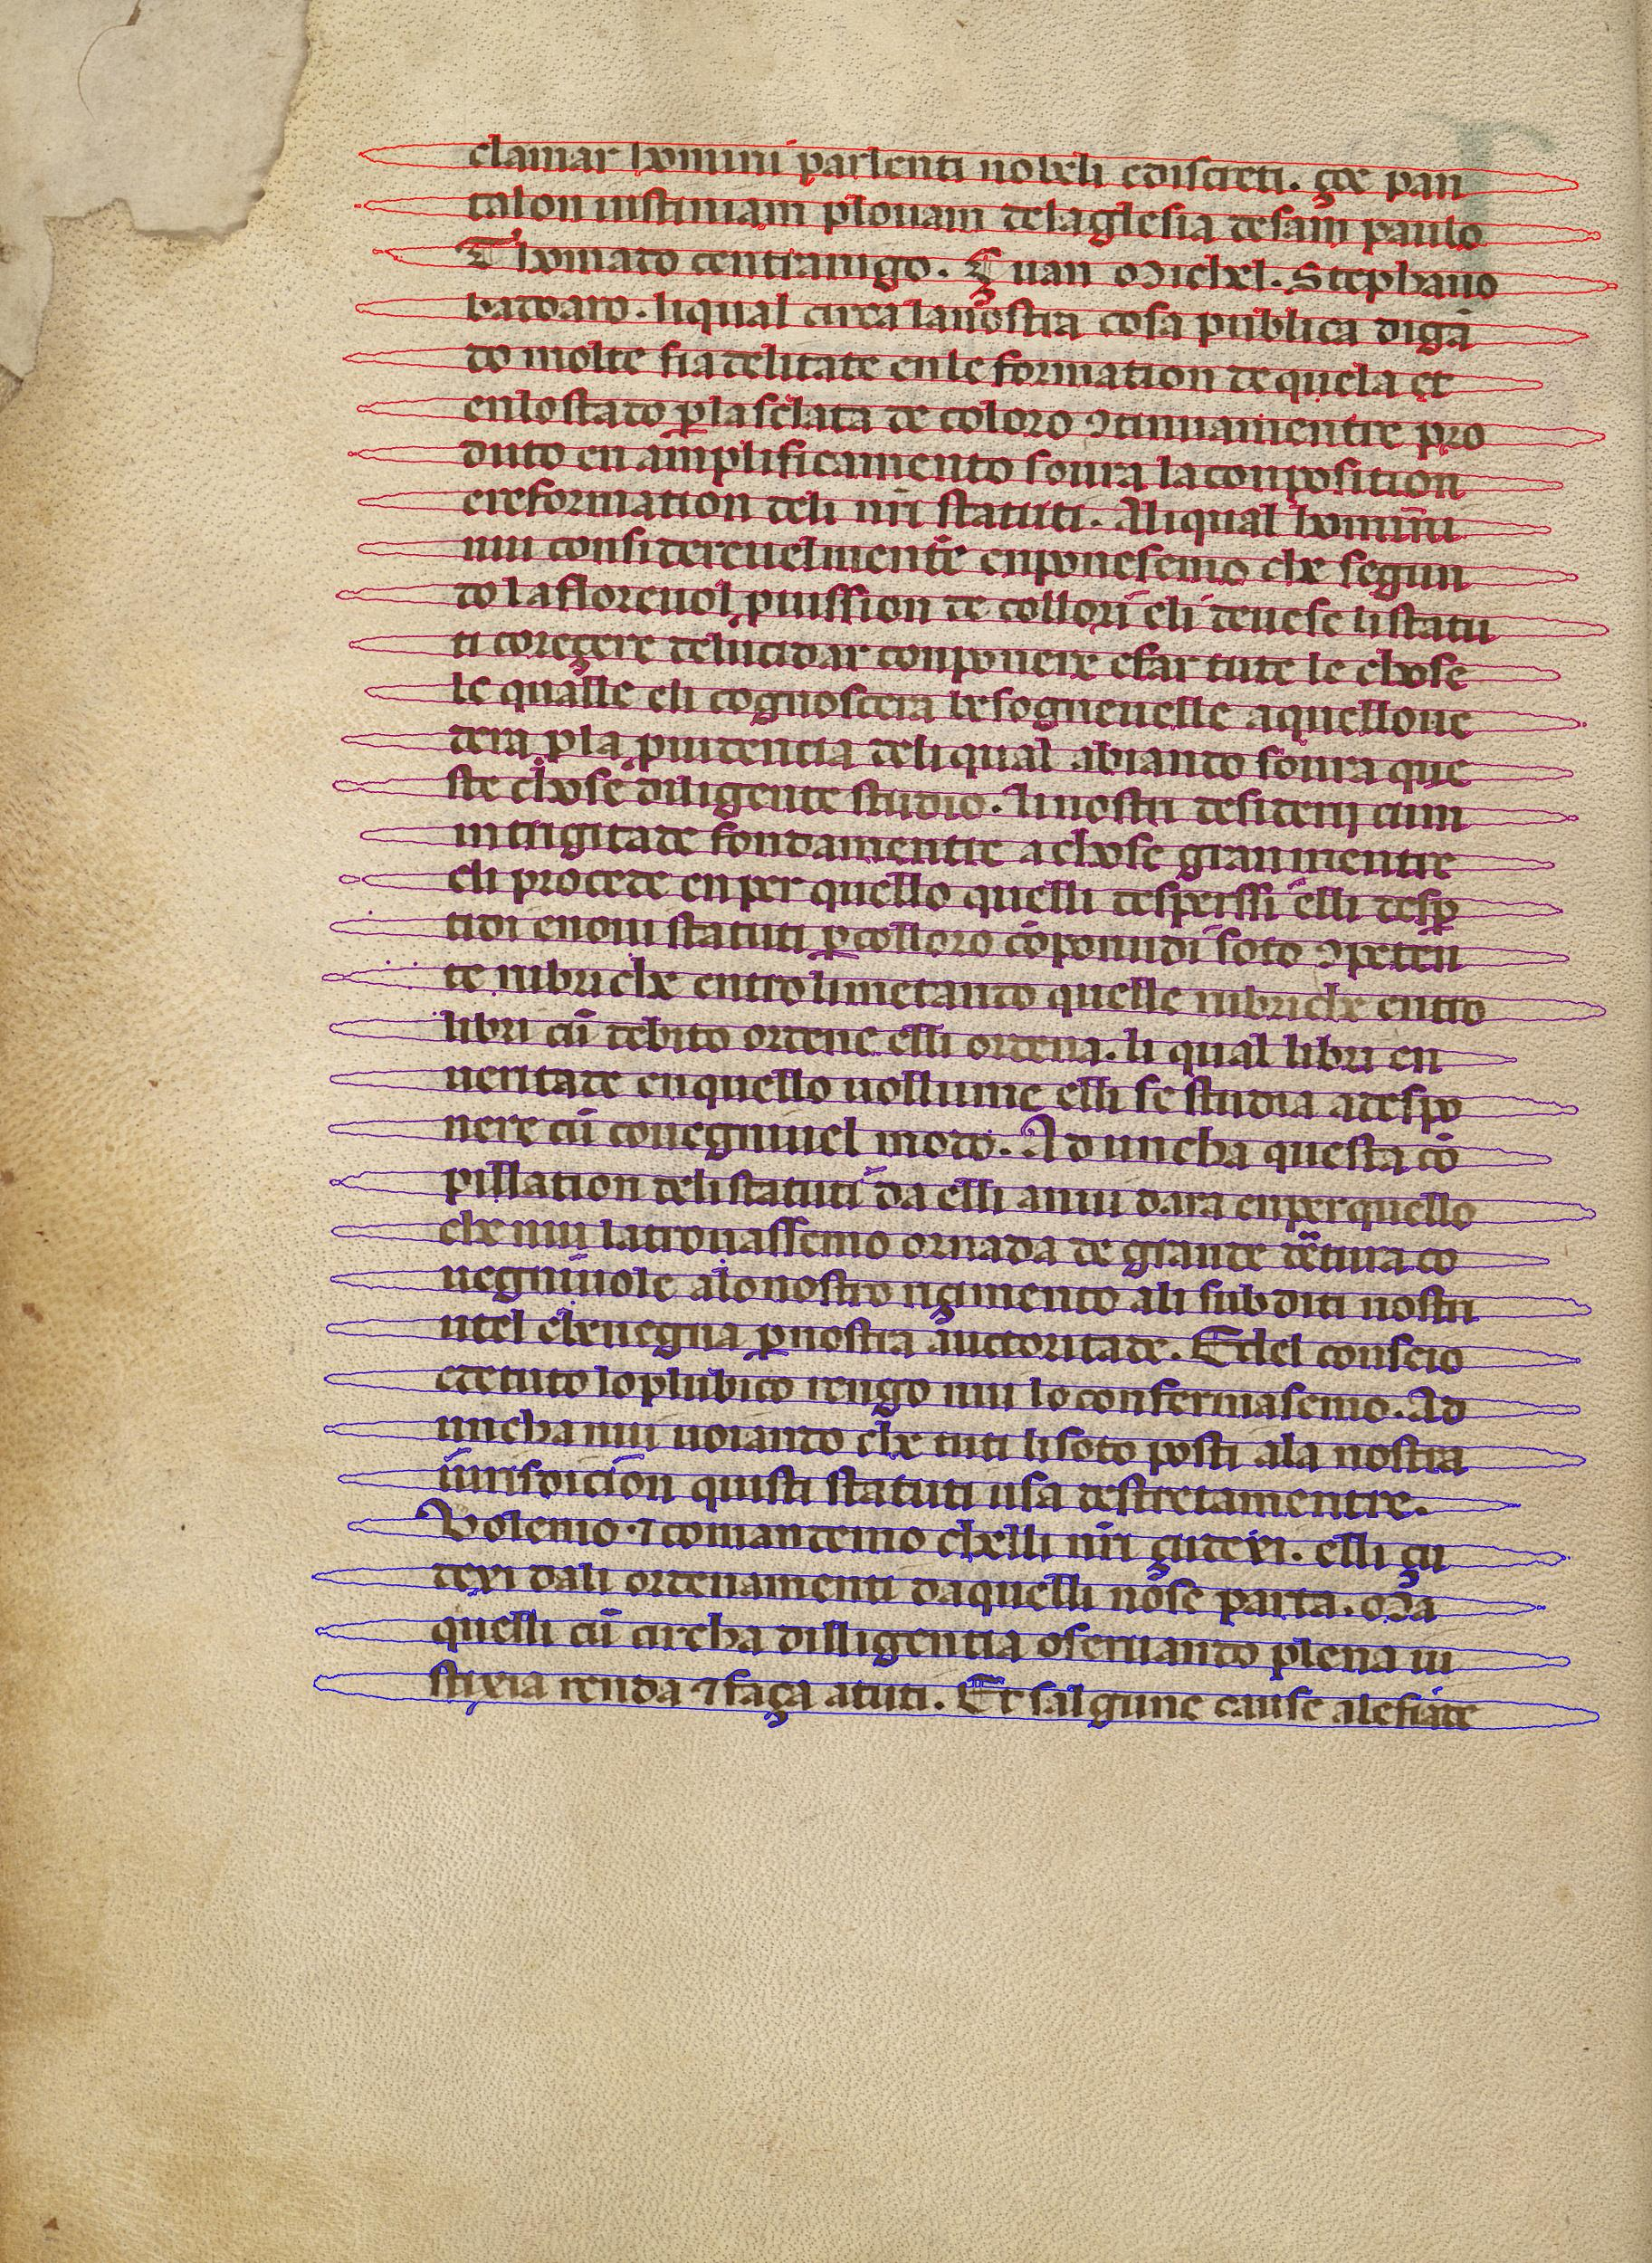 clamar homini parlenti nobeli ediscreti. çoe pan
talon iustinian plouam delaglesia desam paulo
Thomado centranigo. Çuan Michel. Stephano
badoaro. liqual circa lauostra cosa publica digā
do molte fiadelitate enle formation de quela et
enlostado ꝑlasclata de coloro ꝯtinuamentre pro
duto en amplificamento soura laconposition
ereformation deli nr̄i statuti. Aliqual homini
nui considereuelmente enponesemo che segun
do lafloreuol puission de collori eli deuese listatu
ti coreçere delucidar conponere efar tute le chose
le qualle eli cognoscera besogneuelle aquelloue
dera ꝑla prudencia deliqual abiando soura que
ste chose diligente studio. linostri desiderij cum
intrigitade fondamentre achose grauimentre
eli procede enper quello quelli desperssi elli desp̄
tidi enoui statuti ꝑcolloro cōponudi soto ꝯpeten
te rubriche entro limetando quelle rubriche entro
libri cū debito ordene elli ordena. li qual libri en
ueritate enquello uollume elli se studia adespo
nere cū couegniuel modo. Ad uncha questa cō
pillation delistatuti da elli anui dara enperquello
che nui latrouassemo ornada de grande dr̄tura co
uegniuole alonostro riçimento ali subditi nostri
utel chenegna ꝑnostra auctoritade. Edel conseio
edetuto loplubico rengo nui lo confermasemo. Ad
uncha nui uoiando che tuti lisoto posti ala nostra
iurisdicion quisti statuti usa destretamentre.
Volemo ⁊ comandemo chelli nr̄i çudexi. elli çu
dexi dali ordenamenti daquelli nōse parta. Ma
quelli cū circha dilligentia oseruando plena iu
stixia renda ⁊ faça atuti. Et salgune cause alefiate